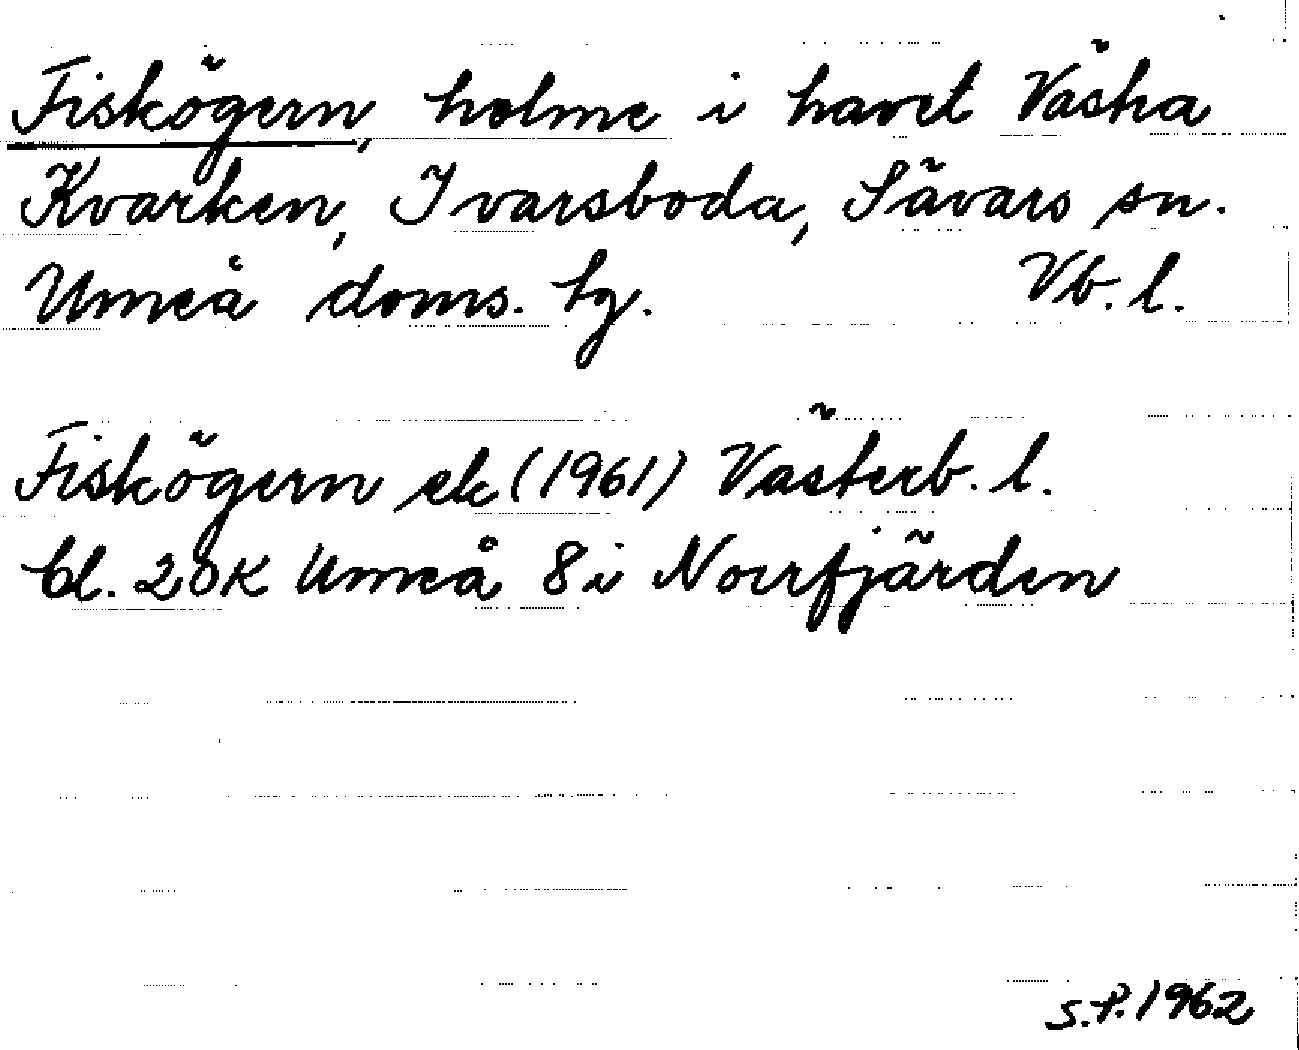 Fiskögern, holme i havet Västra
Kvarken, Ivarsboda, Sävars sn.
Umeå doms. hg. Vb. l.
Fiskögern ek (1961) Västerb. l.
bl. 20K Umeå 8i Norrfjärden
S.P. 1962